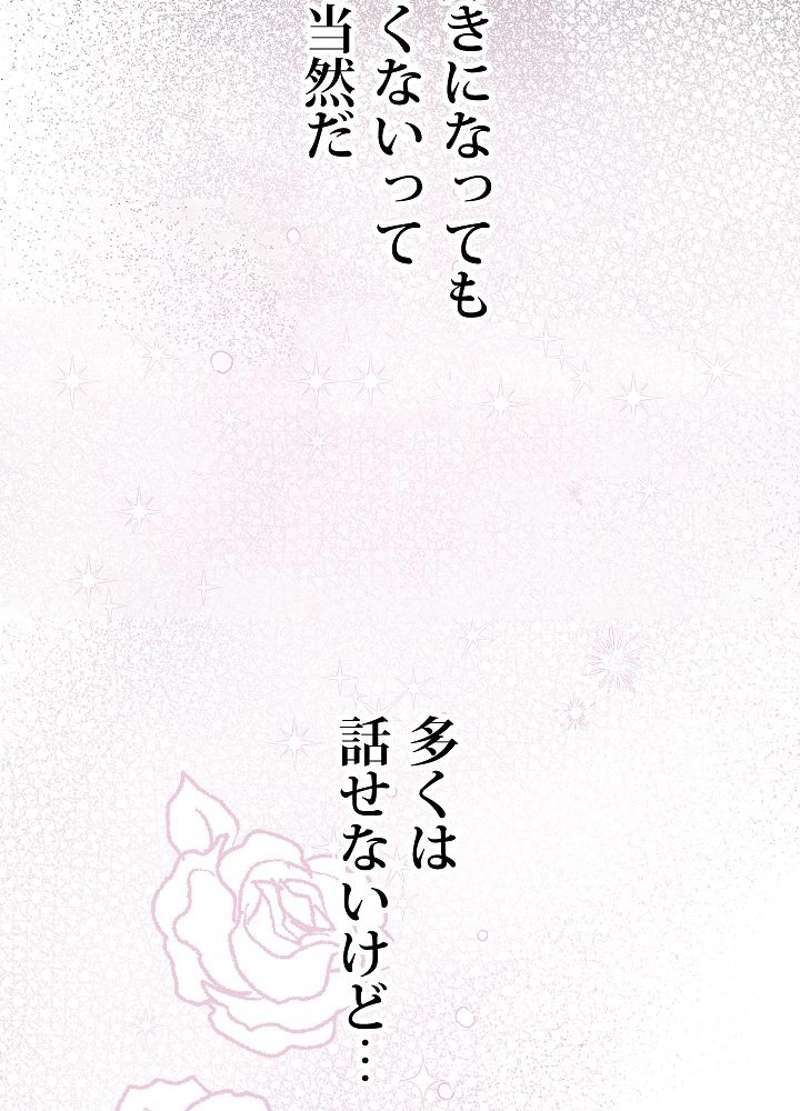 きになっても
くないって
当然だ
多くは
話せないけど…